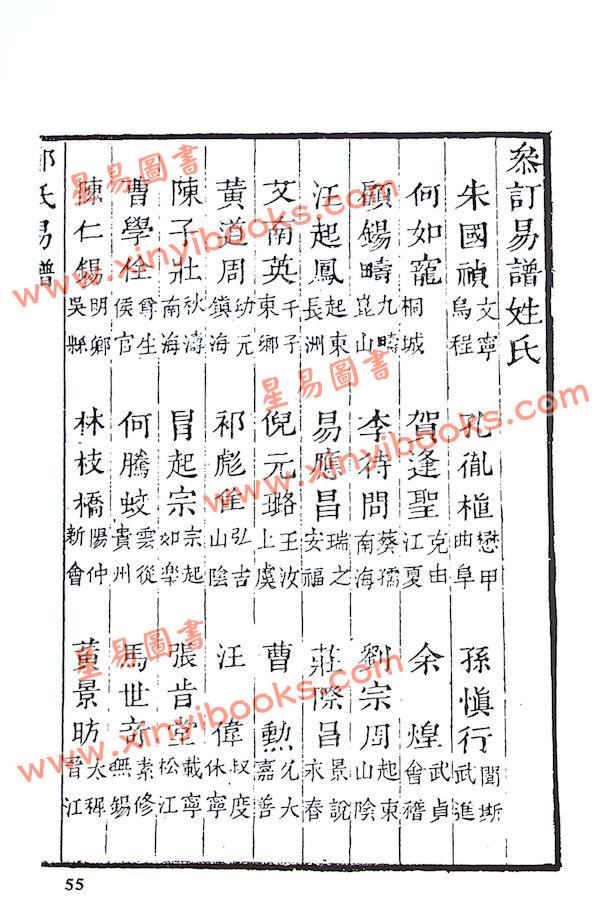 叅訂易譜姓氏
朱國禎 文寧 烏程 孔胤植 懋甲 曲阜 孫慎行 聞斯 武進
何如寵 桐城 賀逢聖 克由 江夏 余煌 武貞 會稽
顧錫疇 九疇 崑山 李待問 葵孺 南海 劉宗周 起東 山陰
汪起鳳 起東 長洲 易應昌 瑞之 安福 莊際昌 景說 永春
艾南英 千子 東鄉 倪元璐 玉汝 上虞 曹勲 允大 嘉善
黃道周 幼元 鎮海 祁彪佳 弘吉 山陰 汪偉 叔度 休寧
陳子壯 秋濤 南海 冒起宗 宗起 如臯 張肯堂 載寧 松江
曹學佺 尊生 侯官 何騰蛟 雲從 貴州 馬世奇 素修 無錫
陳仁錫 明卿 吳縣 林枝橋 陽仲 新會 黃景昉 太穉 晉江
氏易譜
55
星易圖書
www.xinyibooks.com
星易圖書
www.xinyibooks.com
星易圖書
www.xinyibooks.com